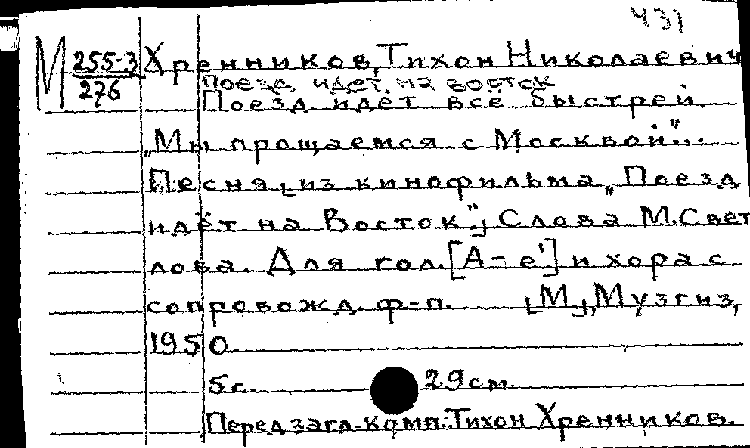 431
М 255-3/276 Хренников, Тихон Николаевич
Поезд идет на восток
Поезд идёт всё быстрей.
„Мы прощаемся с Москвой"...
Песня [из кинофильма „Поезд
идёт на Восток"]. Слова М. Свет
лова. Для гол. [А-е'] и хора с
сопровожд. ф-п. [М.], Музгиз,
1950
5 с. 29 см
Перед загл. комп.: Тихон Хренников.